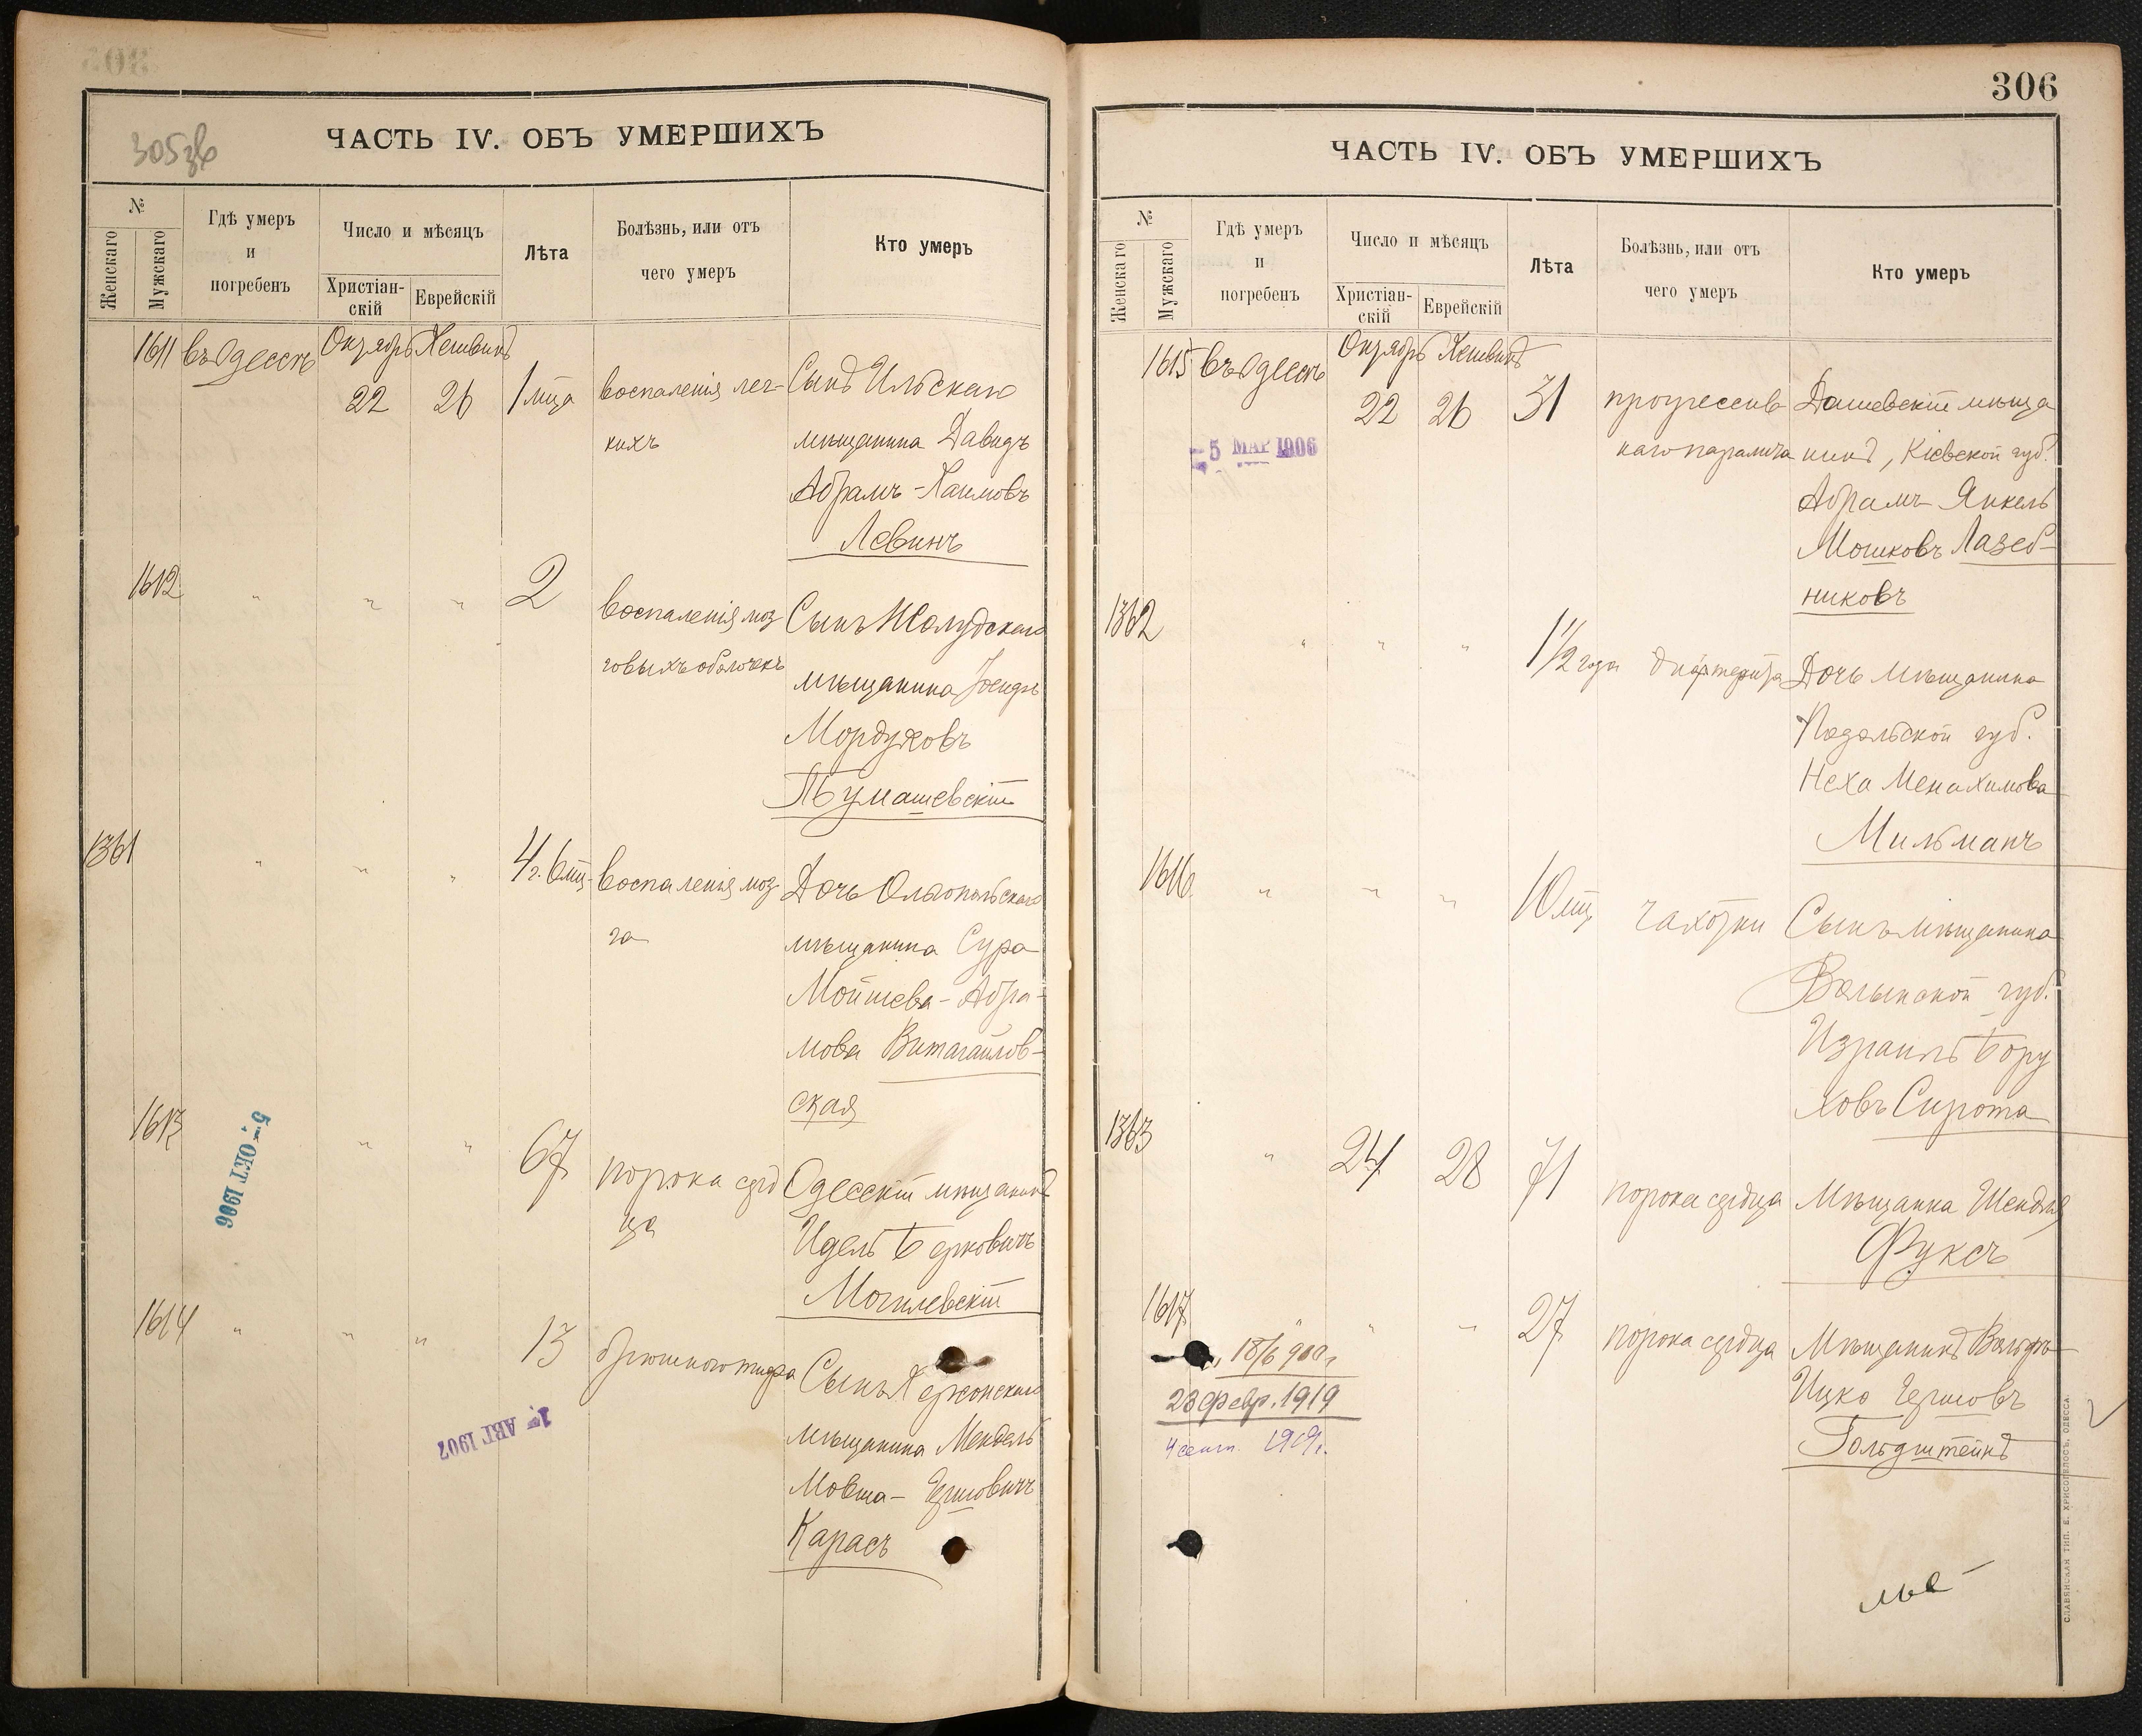 305зв
ЧАСТЬ IV. ОБЪ УМЕРШИХЪ
№
Женскаго
Мужскаго
Гдѣ умеръ
и
погребенъ
Число и мѣсяцъ
Христіан-
скій
Еврейскій
Лѣта
Болѣзнь, или отъ
чего умеръ
Кто умеръ
1611 въ Одессѣ Октябрь Хешвинъ
22 26 1 мца воспаленія лег- Сынъ Ильскаго
кихъ мѣщанина Давидъ
Абрамъ-Хаимовъ
Левинъ
1612 " " " 2 воспаленія моз Сынъ Жолудскаго
говыхъ оболочекъ мѣщанина
Мордуховъ
Тумашевскій
1361 " " " 4 г. 6 мц. воспаленія моз Дочь Ольгопольскаго
га мѣщанина Сура
Мойшева-Абра-
мова
ская
1613 " " 67 порока серд Одесскій мѣщанинъ
ца Идель Берковичъ
Могилевскій
5 ОКТ 1906
1614 " " " 13 брюшного тифа Сынъ Херсонскаго
мѣщанина Мендель
Мовша-Гершовичъ
Карасъ
1 АВГ 1907
306
ЧАСТЬ IV. ОБЪ УМЕРШИХЪ
№
Женскаго
Мужскаго
Гдѣ умеръ
и
погребенъ
Число и мѣсяцъ
Христіан-
скій
Еврейскій
Лѣта
Болѣзнь, или отъ
чего умеръ
Кто умеръ
1615 въ Одессѣ Октябрь Хешвинъ
22 26 31 прогрессив Дашевскій мѣща
наго паралича нинъ, Кіевской губ.
5 МАР 1906
Абрамъ-Янкель
Мошковъ Лазеб-
никовъ
1362 " " " 1 1/2 года дифтерита Дочь мѣщанина
Подольской губ.
Неха Менахимова
Мильманъ
1616 " " " 10 мц чахотки Сынъ мѣщанина
Волынской губ.
Израиль Бору
ховъ Сирота
1363 " 24 28 71 порока сердца Мѣщанка Шендля
Фуксъ
1617 " " " 27 порока сердца Мѣщанинъ Вольфъ-
Ицко Гершовъ
Гольдштейнъ
18/6 900 г
23 февр. 1919
4 сент. 1919 г.
СЛАВЯНСКАЯ ТИП. Е. ХРИСОГЕЛОСЪ, ОДЕССА.